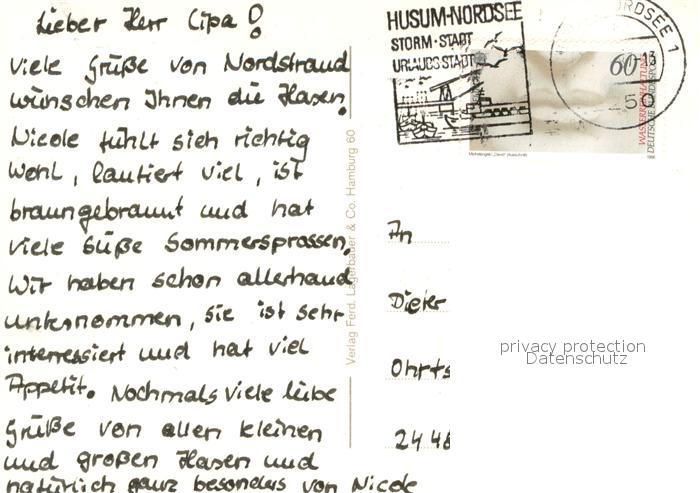 Lieber Herr Cipa!
Viele Grüße von Nordstrand
wünschen Ihnen die Hasen!
Nicole fühlt sich richtig
wohl, lautiert viel, ist
braungebrannt und hat
viele süße Sommersprossen.
Wir haben schon allerhand
unternommen, sie ist sehr
interessiert und hat viel
Appetit. Nochmals viele liebe
Grüße von allen kleinen
und großen Hasen und
natürlich ganz besonders von Nicole
Verlag Ferd. Lagerbauer & Co. Hamburg 60
HUSUM-NORDSEE
STORM-STADT
URLAUBSSTADT
RDSEE 1
13
50
60
WASSERREINHALTUNG
DEUTSCHE BUNDESP
An
Dieter
Ohrts
privacy protection
Datenschutz
24 48